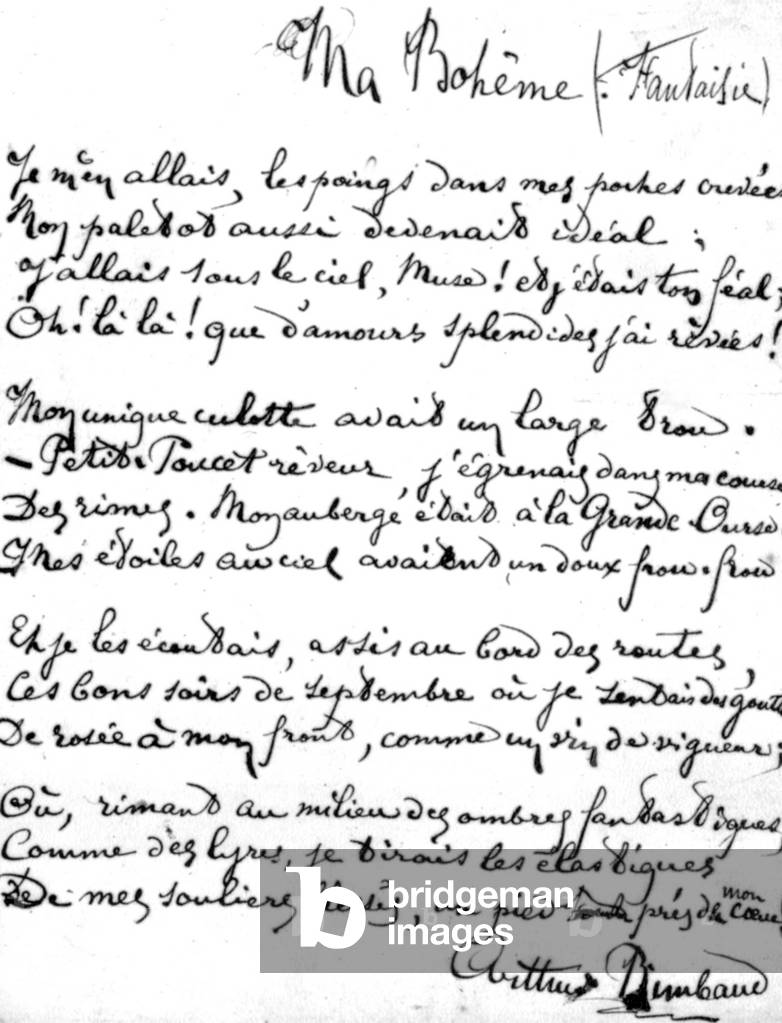 Ma Bohême (. Fantaisie)
Je m'en allais, les poings dans mes poches crevées
Mon paletot aussi devenait idéal ;
J'allais sous le ciel, Muse ! et j'étais ton féal ;
Oh ! là là ! que d'amours splendides j'ai rêvées !
Mon unique culotte avait un large trou .
– Petit-Poucet rêveur, j'égrenais dans ma course
Des rimes. Mon auberge était à la Grande-Ourse
Mes étoiles au ciel avaient un doux frou-frou
Et je les écoutais, assis au bord des routes,
Ces bons soirs de septembre où je sentais des goutt
De rosée à mon front, comme un vin de vigueur ;
Où, rimant au milieu des ombres fantastiques
Comme des lyres, je tirais les élastiques
De mes souliers blessés, un pied près de mon Coeur
Arthur Rimbaud
b bridgeman images